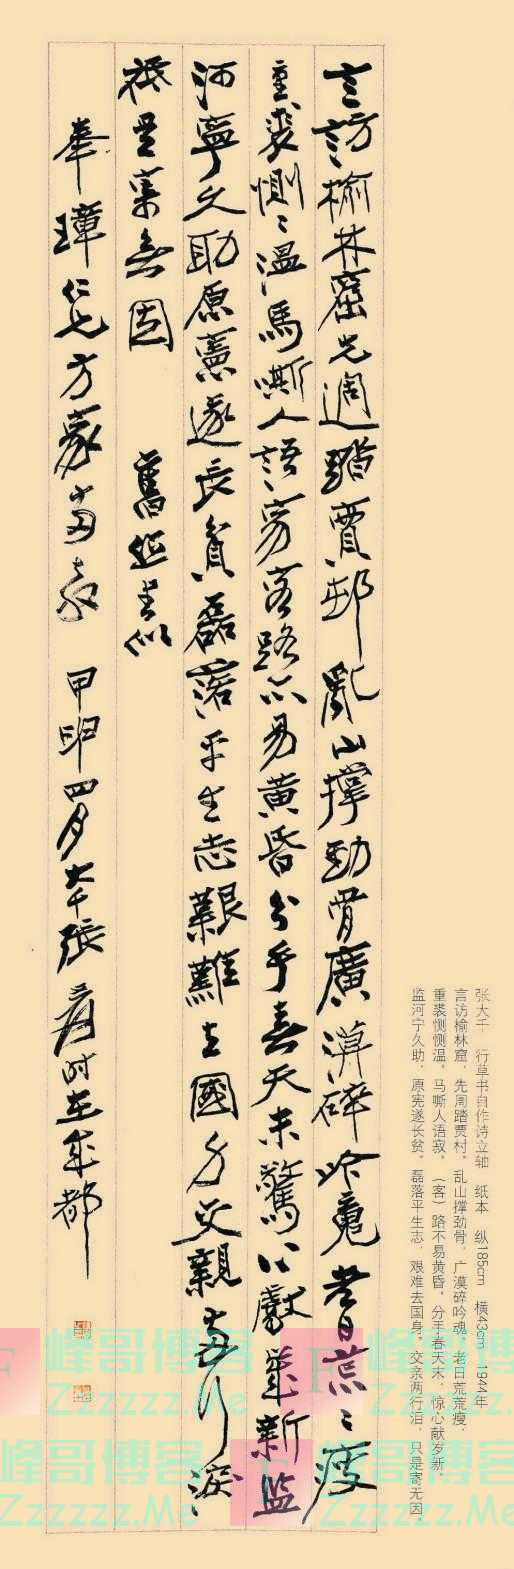 张大千 行草书自作诗立轴 纸本 纵185cm 横43cm 1944年
言访榆林窟，先周踏贾村。乱山撑劲骨，广漠碎吟魂。老日荒荒瘦，
重裘恻恻温。马嘶人语寂，（客）路不易黄昏。分手春天末，惊心献岁新。
监河宁久助，原宪遂长贫。磊落平生志，艰难去国身。交亲两行泪，只是寄无因。
言訪榆林窟先週踏賈邨亂山撐勁骨廣漠碎吟魂老日荒〻瘦
重裘惻〻溫馬嘶人語寂客路不易黃昏分手春天末驚心獻歲新監
河寧久助原憲遂長貧磊落平生志艱難去國身交親兩行淚
祇是寄無因 舊作書似
奉璋仁兄方家兩教 甲申四月大千張爰時在成都
峰哥博客
Zzzzzz.Me
峰哥博客
Zzzzzz.Me
峰哥博客
Zzzzzz.Me